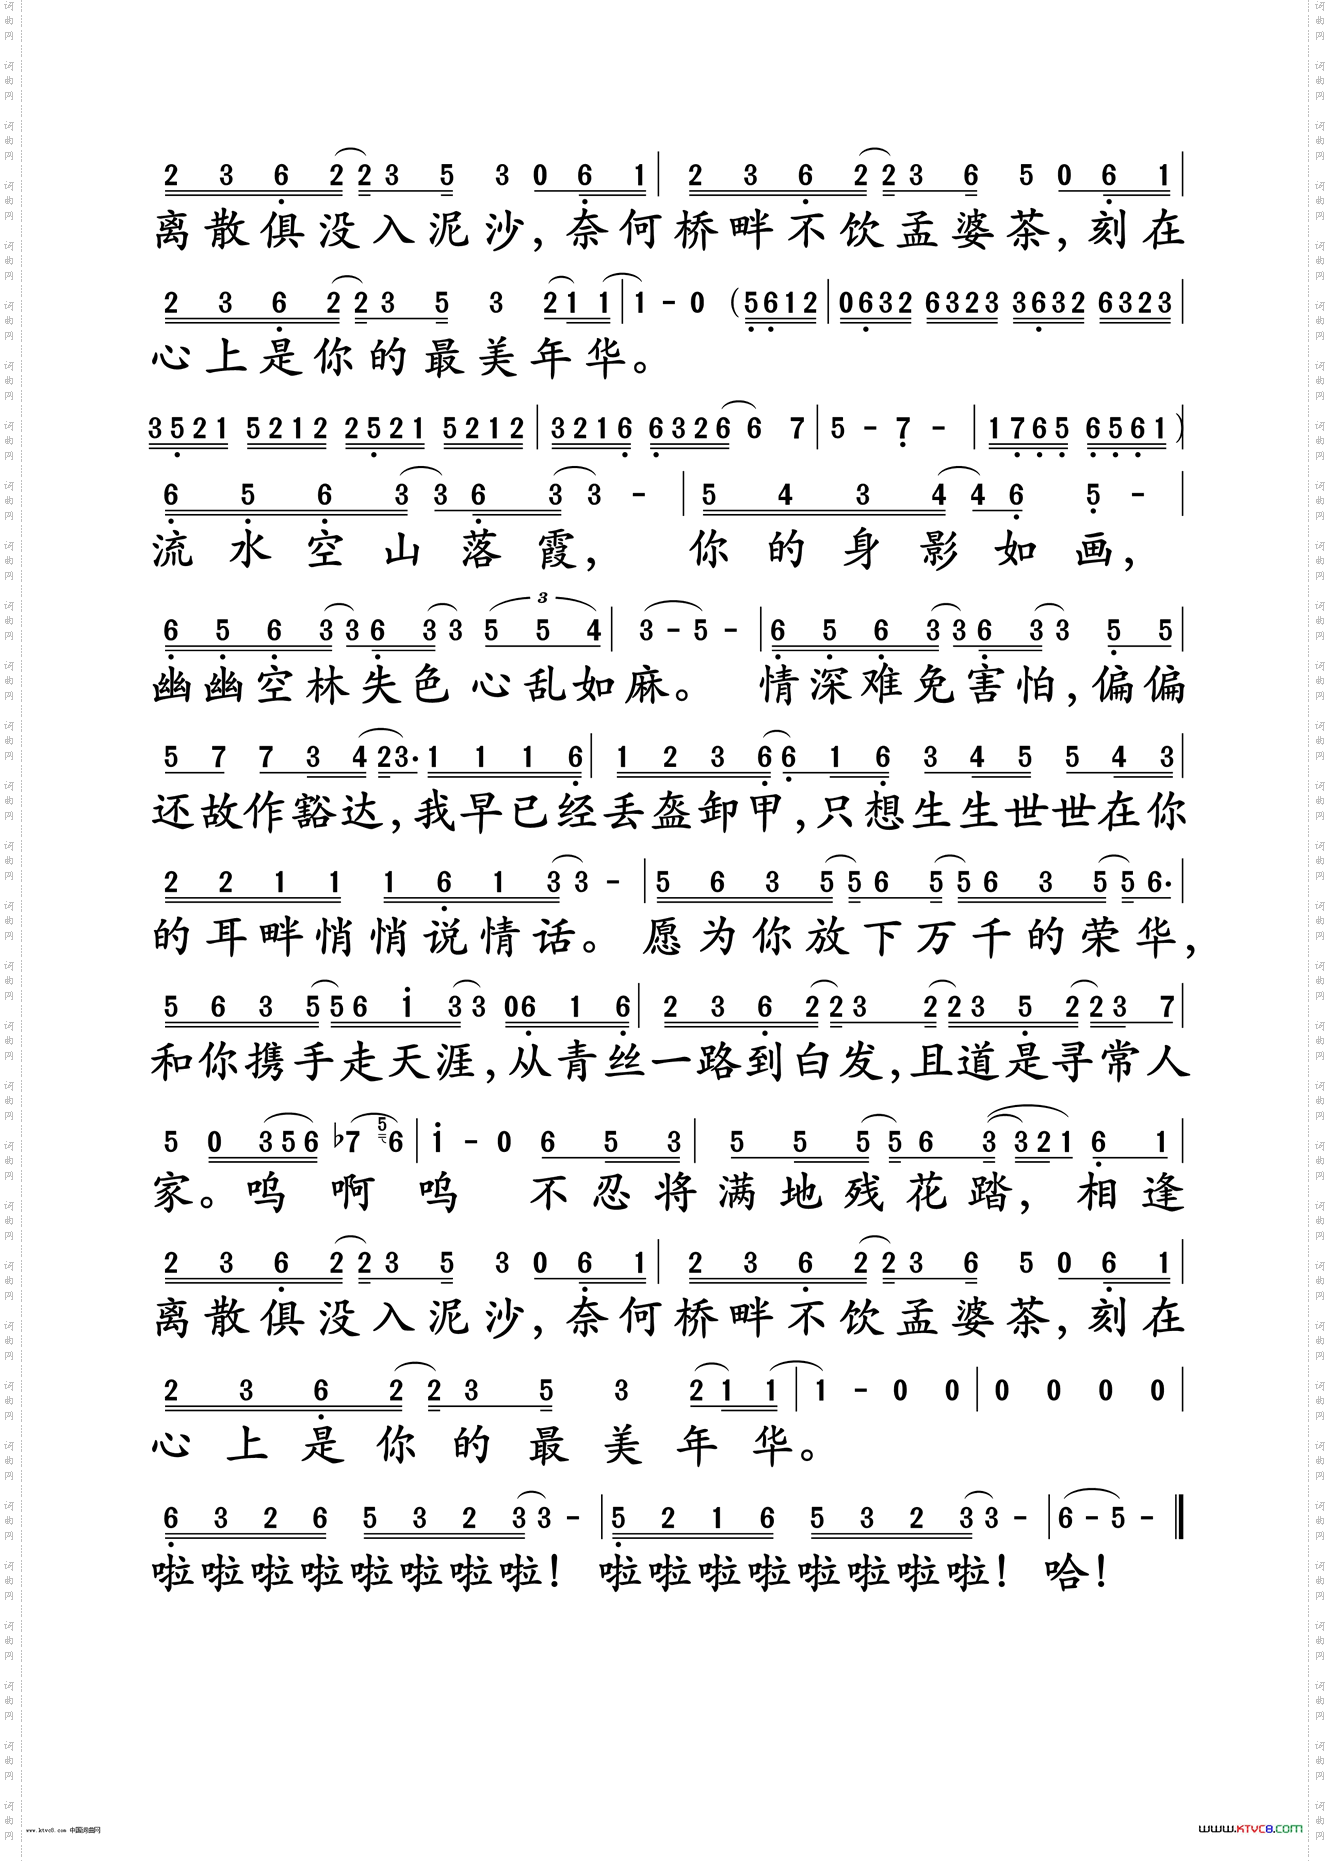 2 3 6 2 2 3 5 3 0 6 1 | 2 3 6 2 2 3 6 5 0 6 1 |
离散俱没入泥沙,奈何桥畔不饮孟婆茶,刻在
2 3 6 2 2 3 5 3 2 1 1 | 1 - 0 (5 6 1 2 | 0 6 3 2 6 3 2 3 3 6 3 2 6 3 2 3 |
心上是你的最美年华。
3 5 2 1 5 2 1 2 2 5 2 1 5 2 1 2 | 3 2 1 6 6 3 2 6 6 7 | 5 - 7 - | 1 7 6 5 6 5 6 1 )
6 5 6 3 3 6 3 3 - | 5 4 3 4 4 6 5 - |
流水空山落霞, 你的身影如画,
3
6 5 6 3 3 6 3 3 5 5 4 | 3 - 5 - | 6 5 6 3 3 6 3 3 5 5 |
幽幽空林失色心乱如麻。 情深难免害怕,偏偏
5 7 7 3 4 2 3. 1 1 1 6 | 1 2 3 6 6 1 6 3 4 5 5 4 3 |
还故作豁达,我早已经丢盔卸甲,只想生生世世在你
2 2 1 1 1 6 1 3 3 - | 5 6 3 5 5 6 5 5 6 3 5 5 6. |
的耳畔悄悄说情话。 愿为你放下万千的荣华,
5 6 3 5 5 6 i 3 3 0 6 1 6 | 2 3 6 2 2 3 2 2 3 5 2 2 3 7 |
和你携手走天涯,从青丝一路到白发,且道是寻常人
5 0 3 5 6 ♭7 5 6 | i - 0 6 5 3 | 5 5 5 5 6 3 3 2 1 6 1 |
家。呜 啊 呜 不忍将满地残花踏, 相逢
2 3 6 2 2 3 5 3 0 6 1 | 2 3 6 2 2 3 6 5 0 6 1 |
离散俱没入泥沙,奈何桥畔不饮孟婆茶,刻在
2 3 6 2 2 3 5 3 2 1 1 | 1 - 0 0 | 0 0 0 0 |
心上是你的最美年华。
6 3 2 6 5 3 2 3 3 - | 5 2 1 6 5 3 2 3 3 - | 6 - 5 - ‖
啦啦啦啦啦啦啦啦! 啦啦啦啦啦啦啦啦! 哈!
www.ktvc8.com 中国词曲网
WWW.KTVC8.COM
词曲网